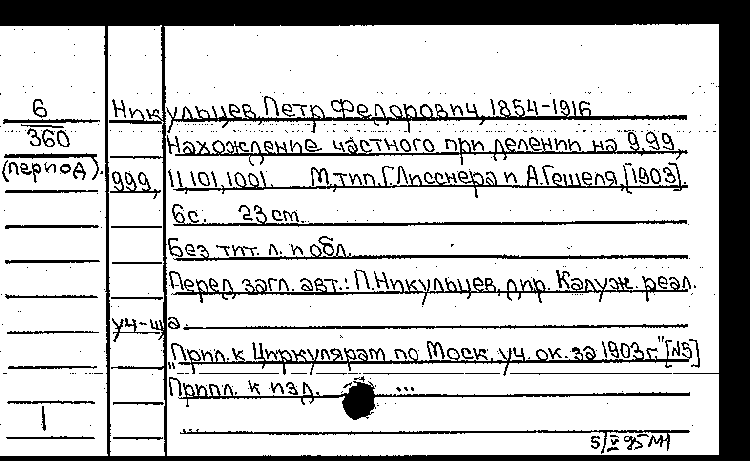 6
360
(период).
Никульцев, Петр Федорович, 1854-1916
Нахождение частного при делении на 9,99,
999, 11,101,1001. М., тип. Г. Лисснера и А. Гешеля, [1903].
6с. 23 см.
Без тит. л. и обл.
Перед загл. авт.: П. Никульцев, дир. Калуж. реал.
уч-ща.
"Прил. к Циркулярам по Моск. уч. ок. за 1903 г." [№5]
Приил. к изд. ...
...
1
5/V 95 МН